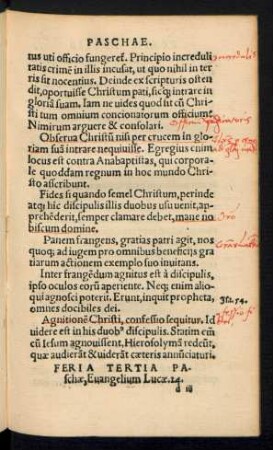 PASCHAE.
tus uti officio fungeret̃. Principio increduli
tatis crimẽ in illis incusat, ut quo nihil in ter
ris sit nocentius. Deinde ex scripturis osten
dit, oportuisse Christum pati, sicq́; intrare in
gloriã suam. Iam ne uides quod sit cũ Chri
sti tum omnium concionatorum officium?
Nimirum arguere & consolari.
Obserua Christũ nisi per crucem in glo-
riam suã intrare nequiuisse. Egregius enim
locus est contra Anabaptistas, qui corpora-
le quoddam regnum in hoc mundo Chri-
sto ascribunt.
Fides si quando semel Christum, perinde
atq; hic discipulis illis duobus usu uenit, ap-
prehẽderit, semper clamare debet, mane no
biscum domine.
Panem frangens, gratias patri agit, nos
quoq; ad iugem pro omnibus beneficijs gra
tiarum actionem exemplo suo inuitans.
Inter frangẽdum agnitus est à discipulis,
ipso oculos eorũ aperiente. Neq; enim alio-
qui agnosci poterit. Erunt, inquit propheta,
omnes docibiles dei.
Iesa. 54.
Agnitionẽ Christi, confessio sequitur. Id
uidere est in his duob⁹ discipulis. Statim cũ
cũ Iesum agnouissent, Hierosolymã redeũt,
quæ audierãt & uiderãt cæteris annũciaturi.
FERIA TERTIA PA-
schæ, Euangelium Lucæ. 24.
d iij